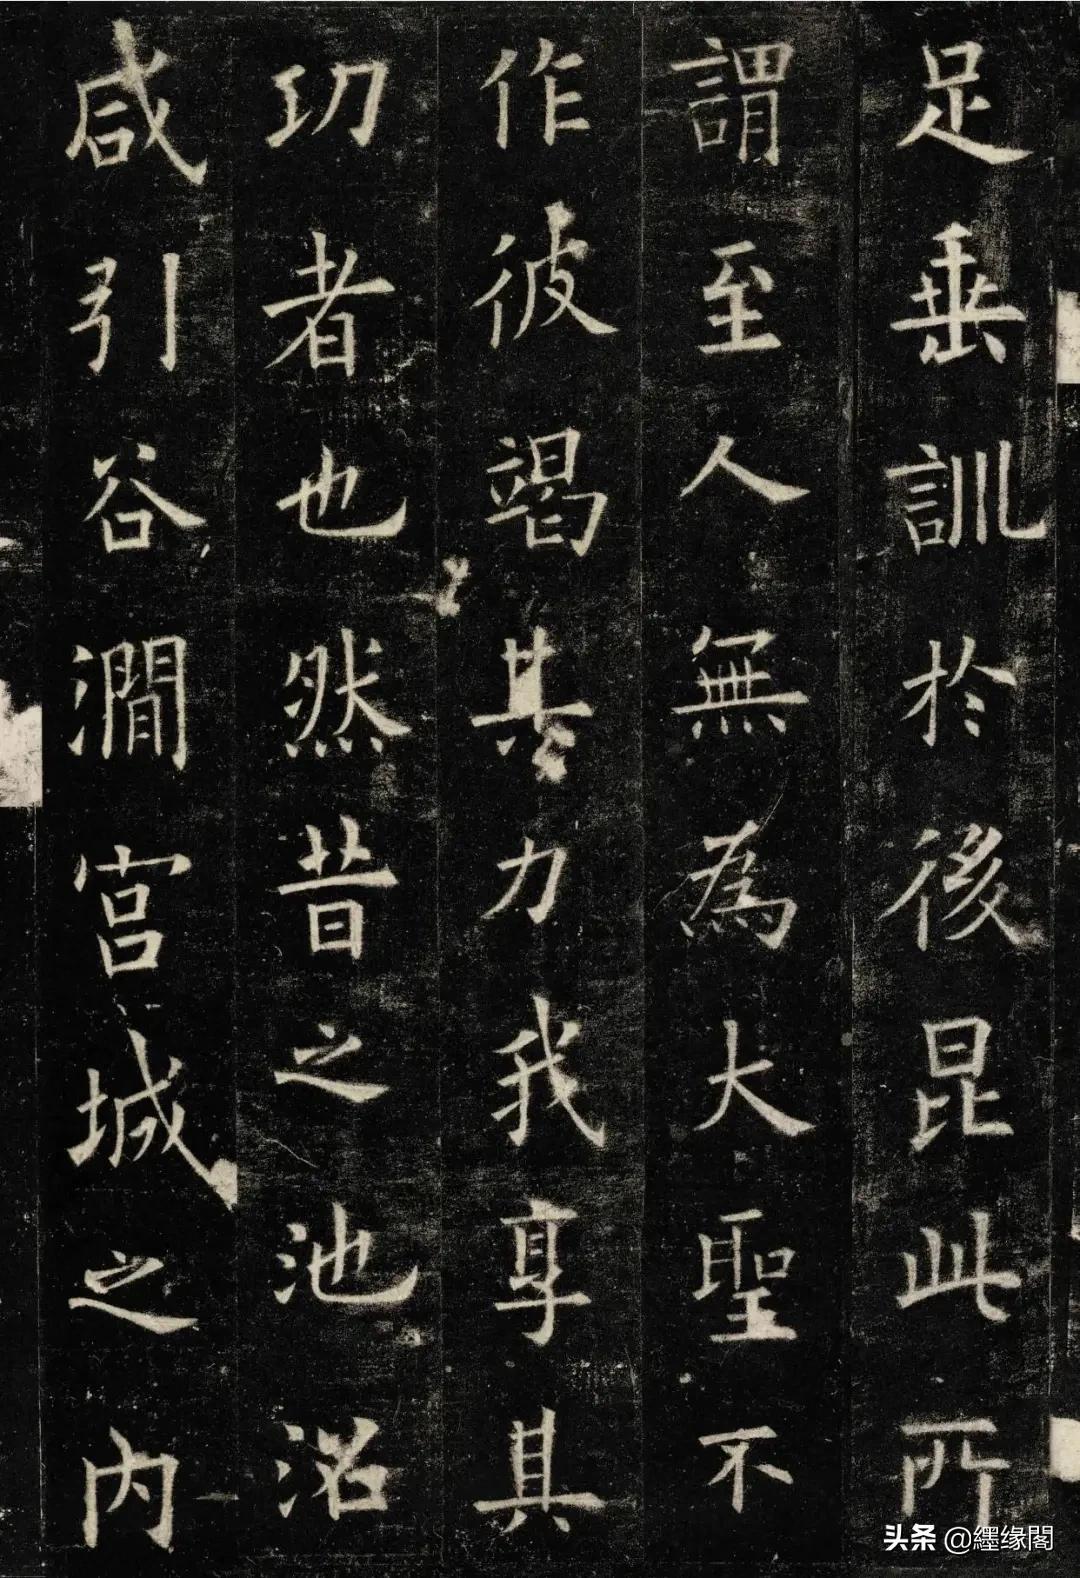 足垂訓於後昆此所
謂至人無為大聖不
作彼竭其力我享其
功者也然昔之池沼
咸引谷澗宮城之內
头条 @纆缘閣